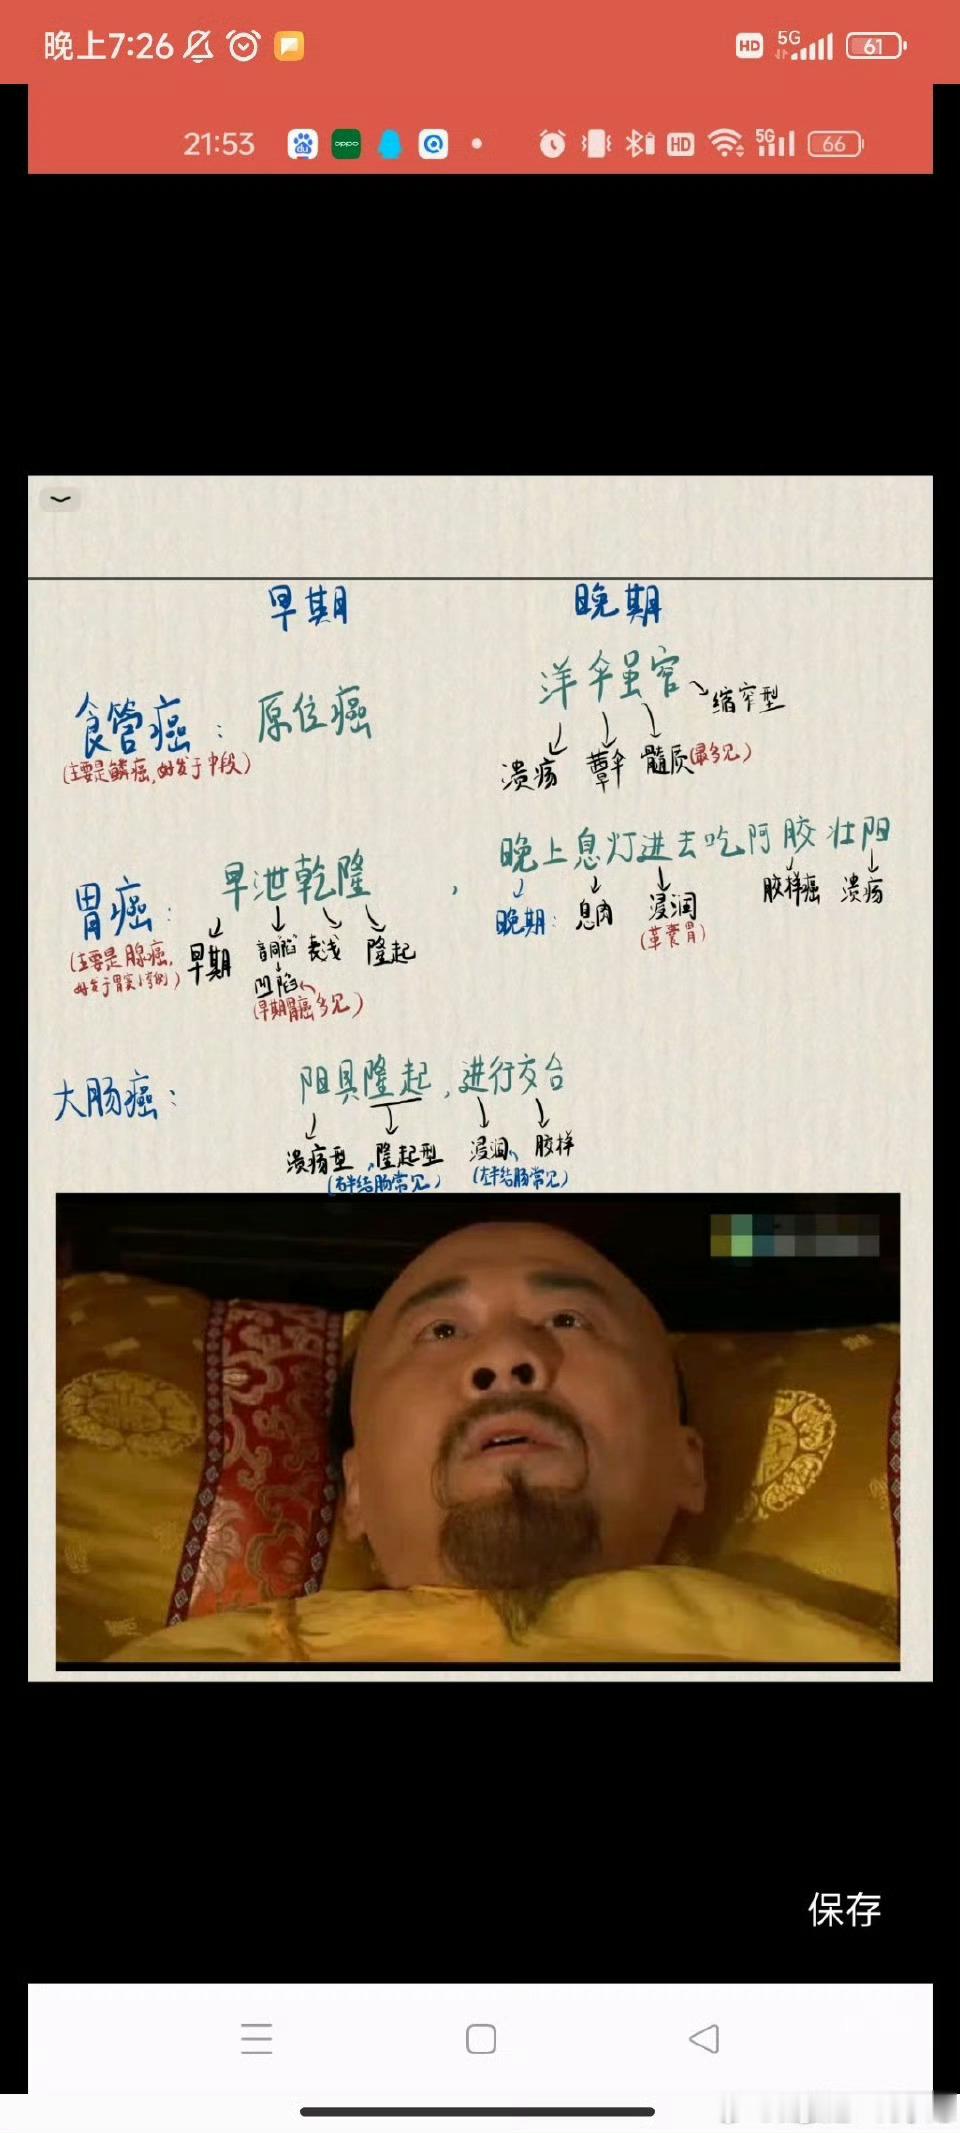 晚上7:26 HD 5G 61
21:53 oppo HD 5G 66
早期 晚期
食管癌：原位癌 洋伞虽窄 缩窄型
(主要是鳞癌,好发于中段) 溃疡 蕈伞 髓质(最多见)
胃癌：早泄乾隆，晚上息灯进去吃阿胶壮阳
(主要是腺癌,好发于胃窦小弯侧) 早期 凹陷 表浅 隆起
(早期胃癌多见)
晚期：息肉 浸润 胶样癌 溃疡
(革囊胃)
大肠癌：阻具隆起,进行交合
溃疡型,隆起型 浸润、胶样
(右半结肠常见) (左半结肠常见)
保存